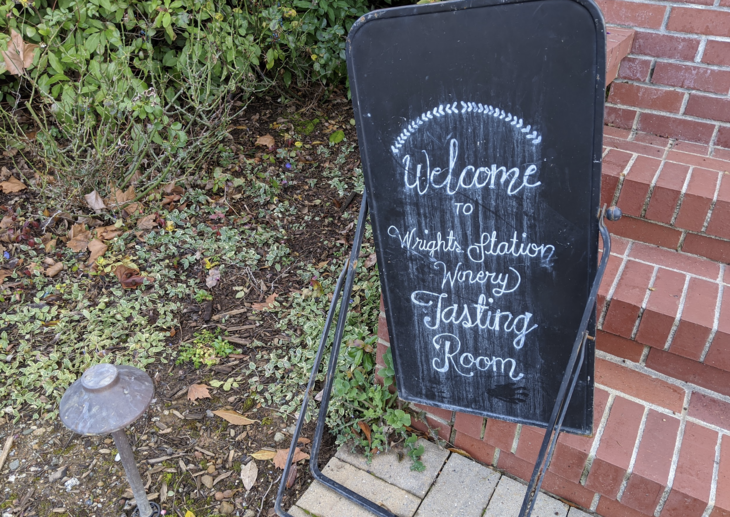 Welcome
TO
Wrights Station
Winery
Tasting
Room